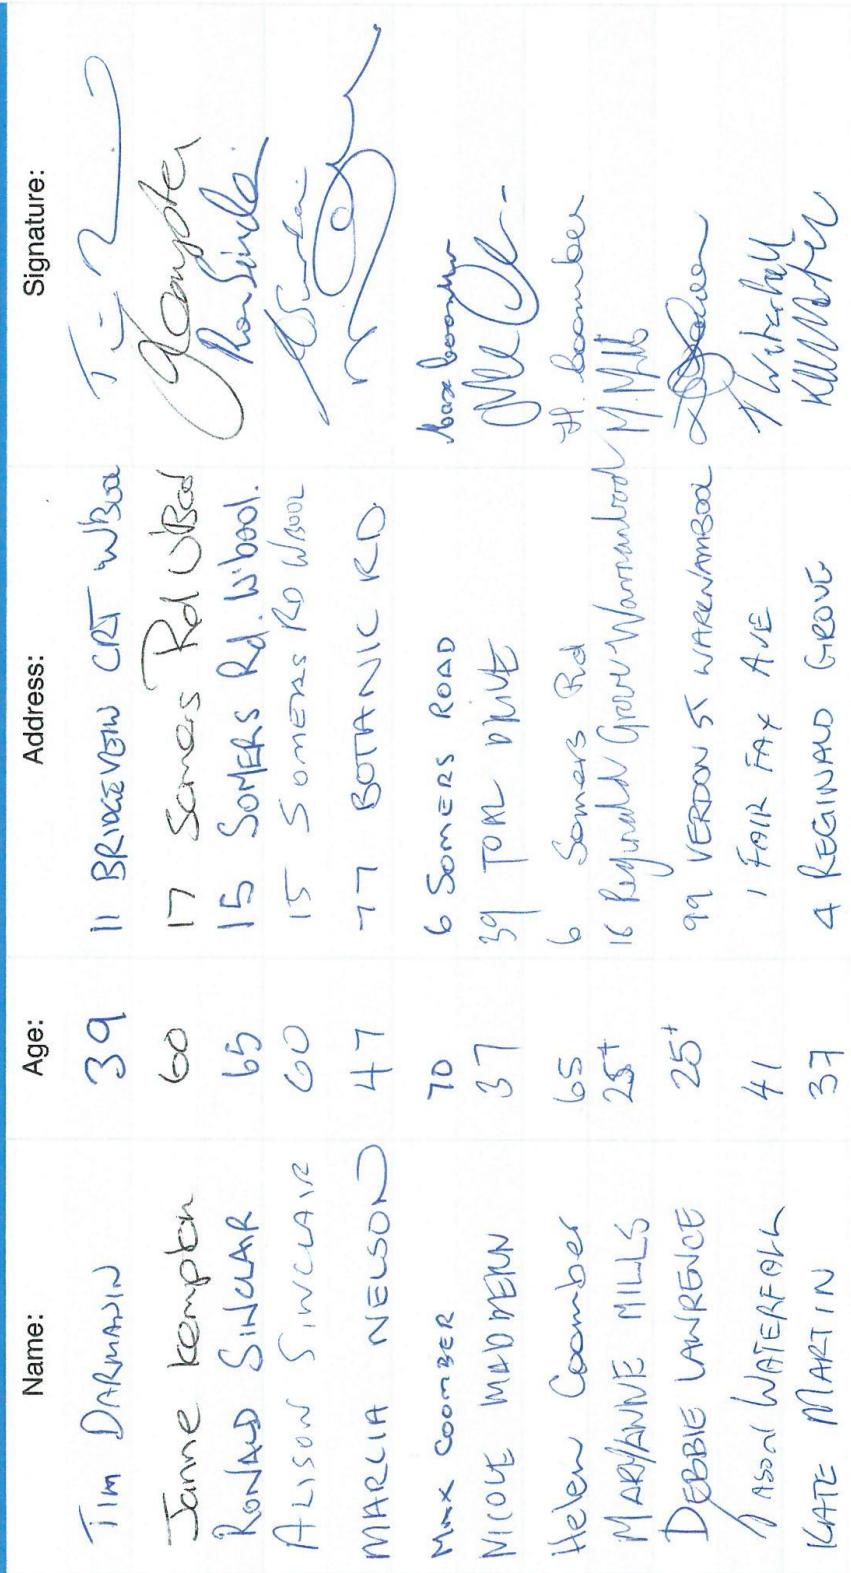 Name: Age: Address: Signature:
TIM DARMANIN 39 11 BRIDGEVIEW CRT W'Bool
Janne Kempton 60 17 Somers Rd W'Bool
RONALD SINCLAIR 65 15 SOMERS Rd. W'bool. Ron Sincla
ALISON SINCLAIR 60 15 SOMERS RD W'BOOL
MARCIA NELSON 47 77 BOTANIC RD.
MAX COOMBER 70 6 SOMERS ROAD Max Coomber
NICOLE MADDERN 37 39 TOAL DRIVE
Helen Coomber 65 6 Somers Rd H. Coomber
MARYANNE MILLS 25+ 16 Reginald Grove Warrnambool M. Mills
DEBBIE LAWRENCE 25+ 99 VERDON ST WARRNAMBOOL
JASON WATERFALL 41 1 FAIR FAX AVE J Waterfall
KATE MARTIN 37 4 REGINALD GROVE